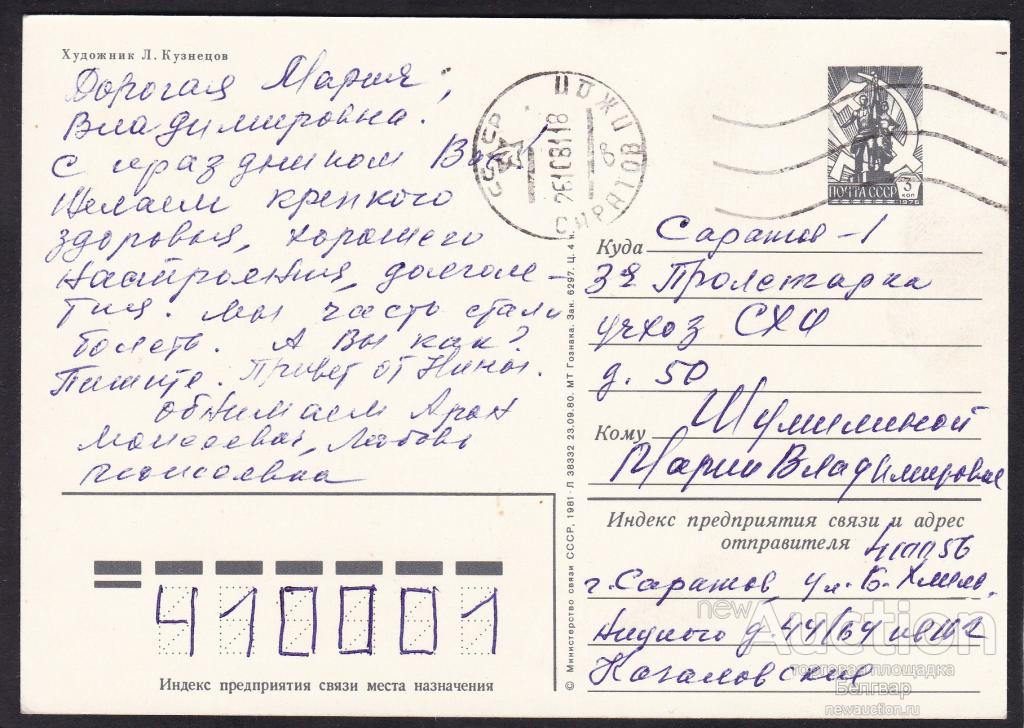 Художник Л. Кузнецов
Дорогая Мария
Владимировна.
С праздником Вас!
Желаем крепкого
здоровья, хорошего
настроения, долголе-
тия. Мы часто стали
болеть. А Вы как?
Пишите. Привет от Нины.
Обнимаем Арон
Моисеевич, Любовь
Моисеевна
СССР
ЦОЖПО
26108118
8
САРАТОВ
ПОЧТА СССР
3 коп
1976
Куда Саратов-1
3я Пролетарка
учхоз СХИ
д. 50
Кому Шумилиной
Марии Владимировне
Индекс предприятия связи и адрес
отправителя 410056
г. Саратов, ул. Б. Хмель
ницкого д. 44/64 кв
Качаловский
410001
Индекс предприятия связи места назначения
© Министерство связи СССР, 1981·Л 38332 23.09.80. МТ Гознака. Зак. 6297. Ц. 4 к.
newAuction
торговая площадка
Белгвар
newauction.ru